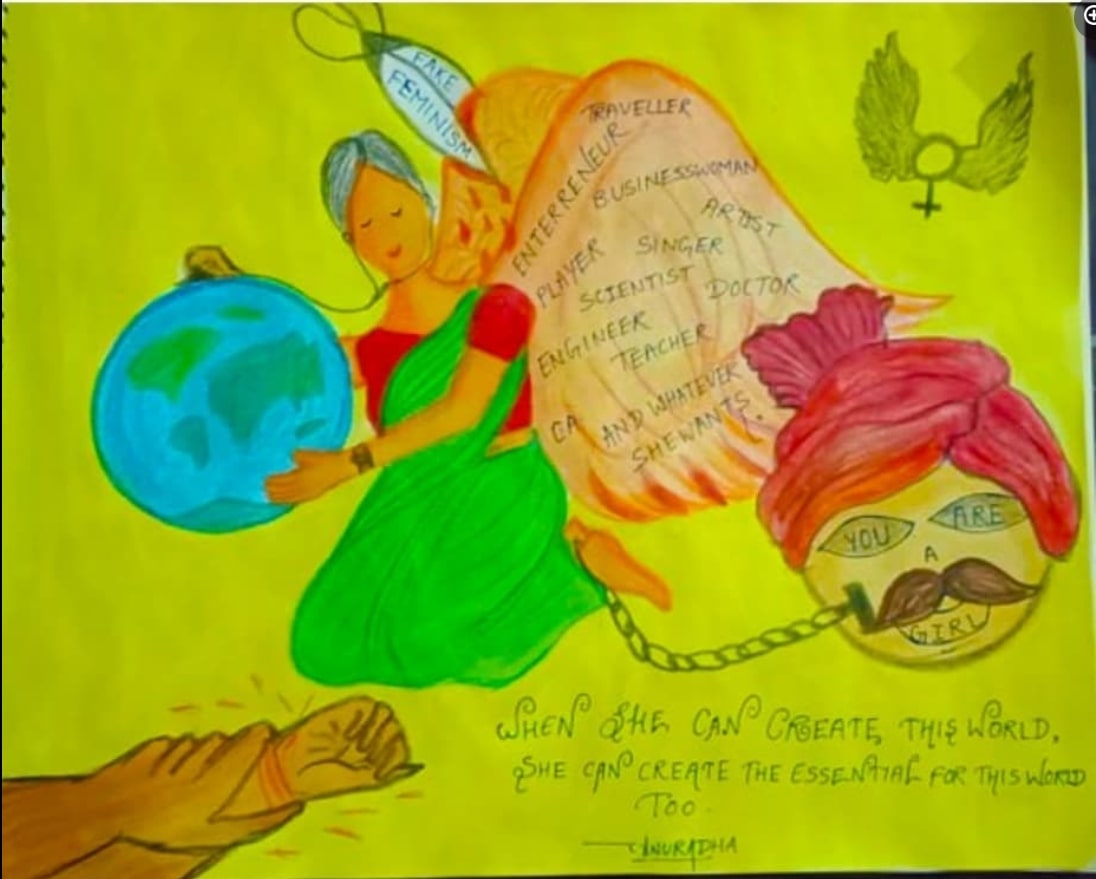 FAKE
FEMINISM
TRAVELLER
ENTERRENEUR
BUSINESSWOMAN
ARTIST
PLAYER
SINGER
SCIENTIST
DOCTOR
ENGINEER
TEACHER
CA AND WHATEVER
SHE WANTS.
YOU ARE
A
GIRL
WHEN SHE CAN CREATE THIS WORLD,
SHE CAN CREATE THE ESSENTIAL FOR THIS WORLD
TOO.
—ANURADHA